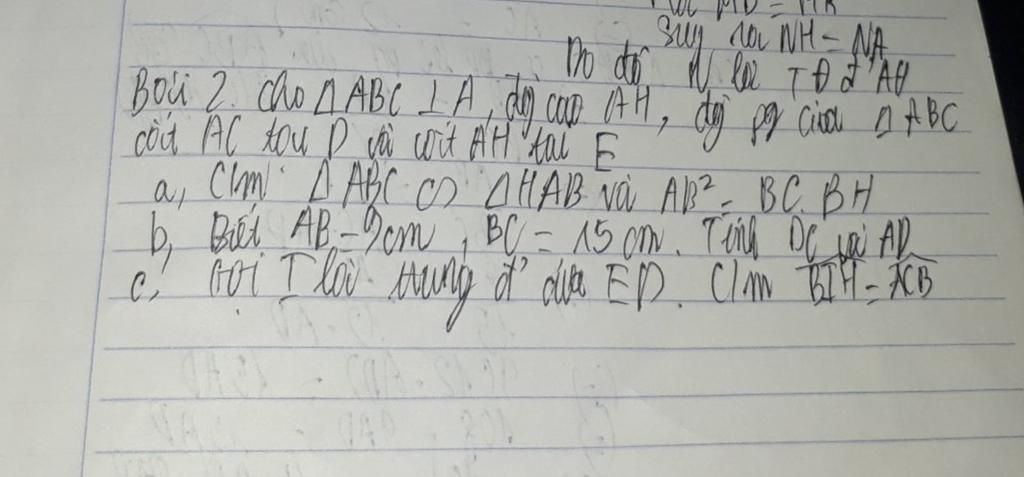 MD = MK
Suy ra NH = NA
Do đó N là TĐ đ' AH
Bài 2. Cho Δ ABC ⊥ A, đg cao AH, đg pg của Δ ABC
cắt AC tại D và cắt AH tại E
a, C/m: Δ ABC ∽ Δ HAB và AB² = BC. BH
b, Biết AB = 9cm, BC = 15 cm. Tính DC và AD
c, Gọi I là trung đ' của ED. C/m \widehat{BIH} = \widehat{ACB}